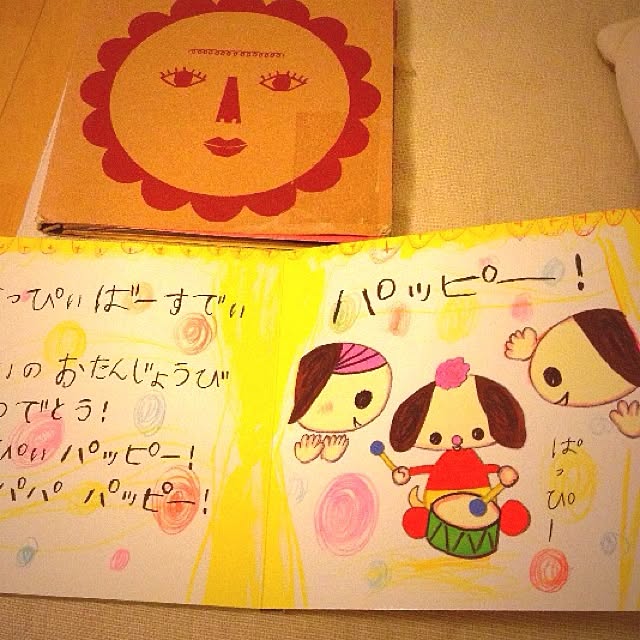 っぴぃ ばーすでぃ
いの おたんじょうび
でとう!
ぴぃ パッピー!
パパ パッピー!
パッピー!
ぱっぴー